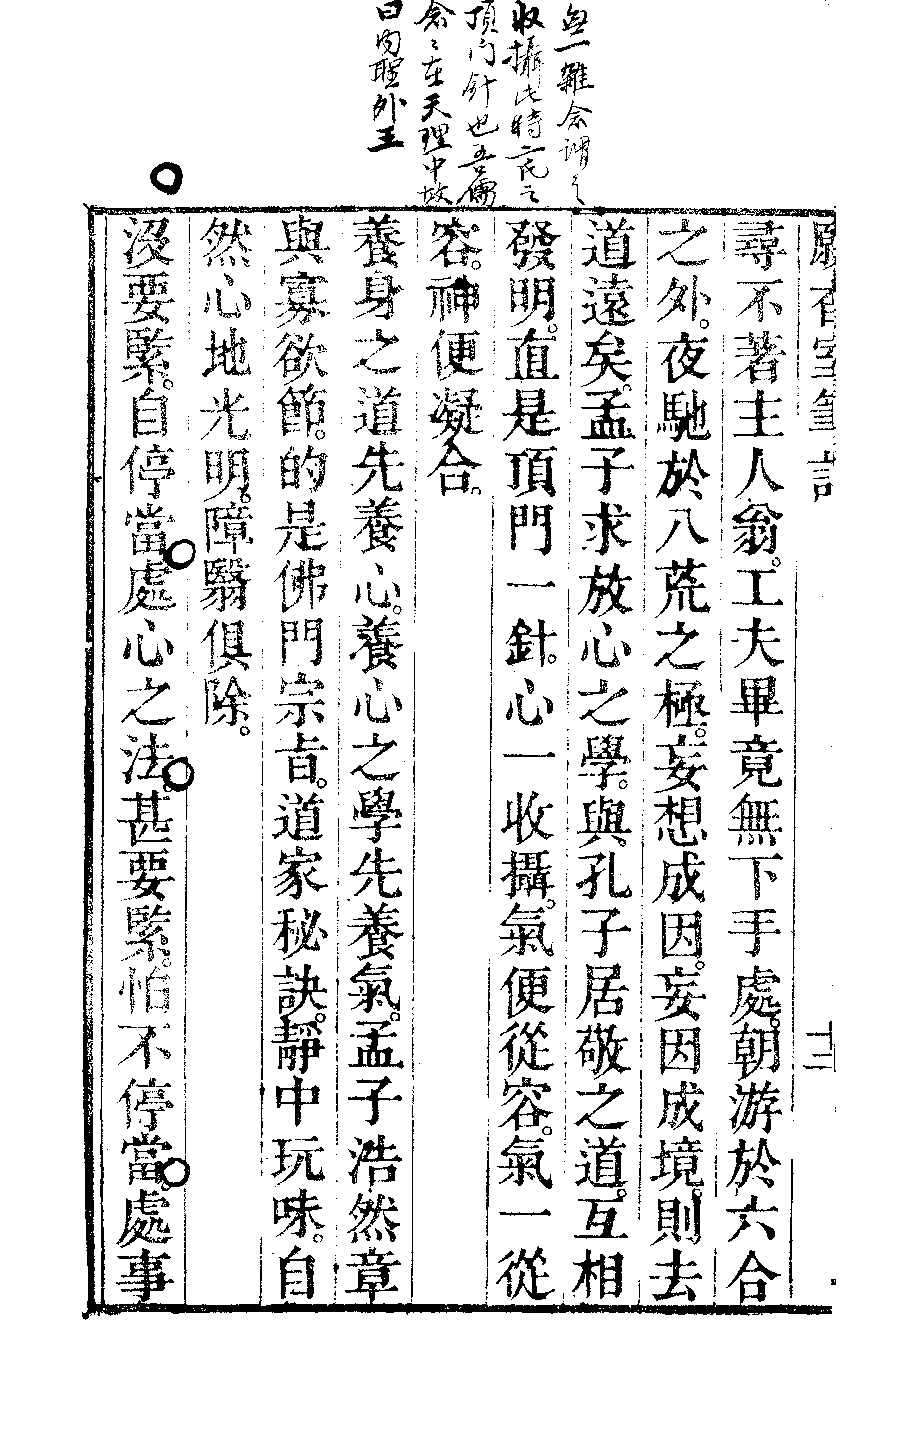 無一雜念謂之
收攝此時二氏之
頂門針也吾儒
念念在天理中故
曰內聖外王
願香室筆記
十二
尋不著主人翁。工夫畢竟無下手處。朝游於六合
之外。夜馳於八荒之極。妄想成因。妄因成境。則去
道遠矣。孟子求放心之學。與孔子居敬之道。互相
發明。直是頂門一針。心一收攝。氣便從容。氣一從
容。神便凝合。
養身之道先養心。養心之學先養氣。孟子浩然章
與寡欲節。的是佛門宗旨。道家秘訣。靜中玩味。自
然心地光明。障翳俱除。
沒要緊。自停當處心之法。甚要緊。怕不停當。處事